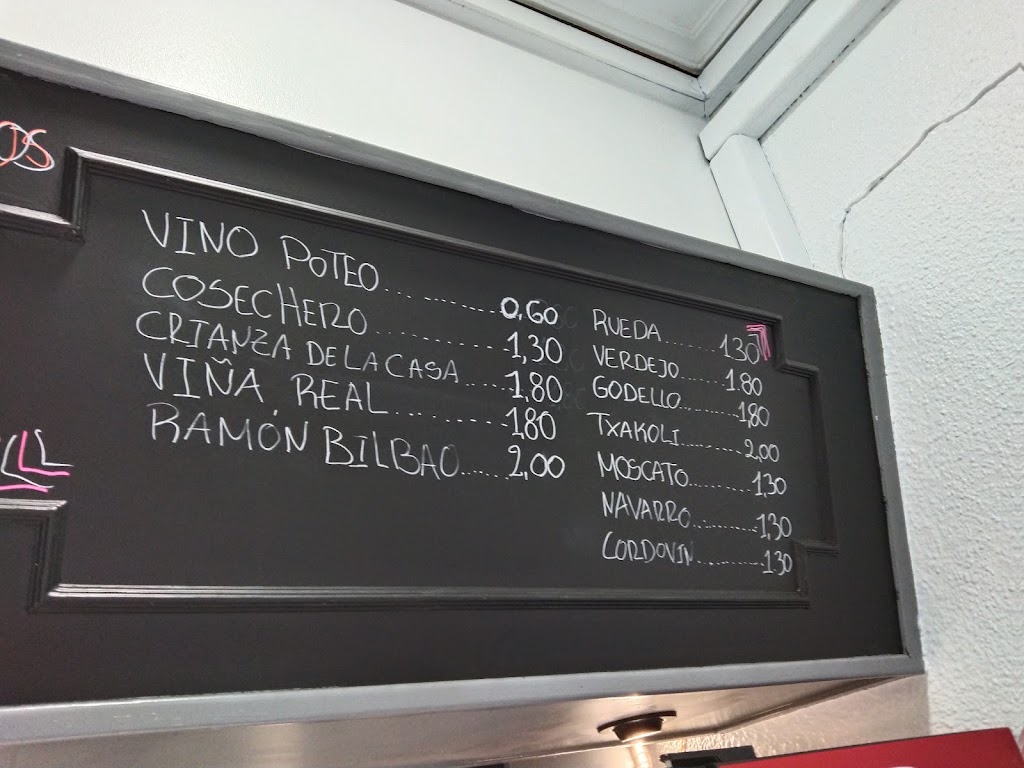 OS
VINO POTEO........ 0,60
COSECHERO........ 1,30
CRIANZA DE LA CASA..... 1,80
VIÑA REAL......... 180
RAMÓN BILBAO..... 2,00
RUEDA........ 130
VERDEJO...... 1.80
GODELLO....... 1,80
TXAKOLI........ 2,00
MOSCATO........ 1,30
NAVARRO........ 1,30
CORDOVIN........ 1.30